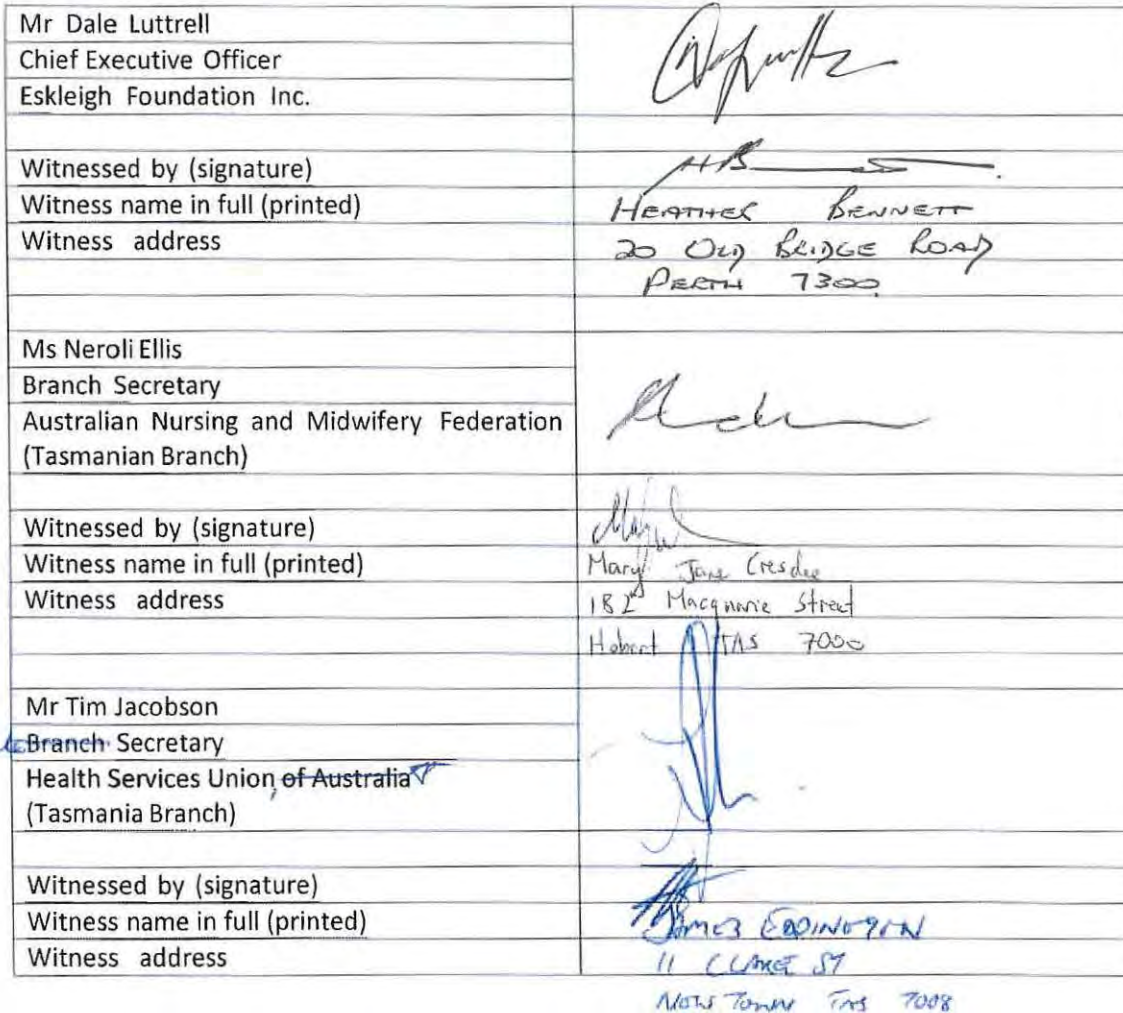 Mr Dale Luttrell
Chief Executive Officer
Eskleigh Foundation Inc.
Witnessed by (signature)
Witness name in full (printed) HEATHER BENNETT
Witness address 20 OLD BRIDGE ROAD
PERTH 7300
Ms Neroli Ellis
Branch Secretary
Australian Nursing and Midwifery Federation
(Tasmanian Branch)
Witnessed by (signature)
Witness name in full (printed) Mary Jane Cresdee
Witness address 182 Macquarie Street
Hobart TAS 7000
Mr Tim Jacobson
Branch Secretary
Health Services Union, of Australia
(Tasmania Branch)
Witnessed by (signature)
Witness name in full (printed) JAMES EDDINGTON
Witness address 11 CLARE ST
NEW TOWN TAS 7008